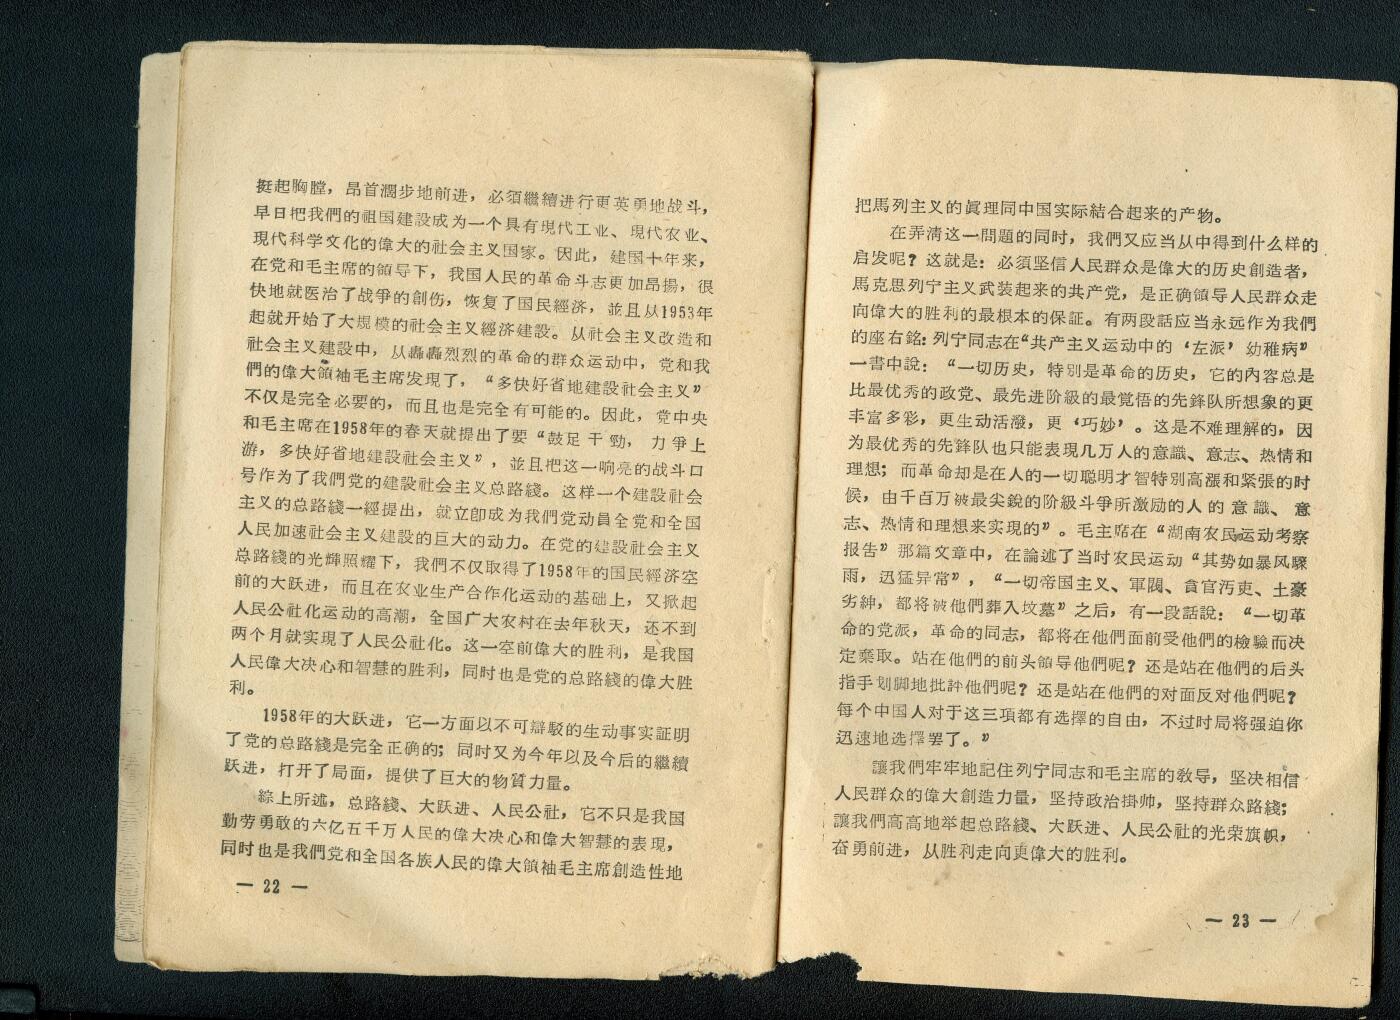 挺起胸膛，昂首濶步地前进，必須繼續进行更英勇地战斗，
早日把我們的祖国建設成为一个具有現代工业、現代农业、
現代科学文化的偉大的社会主义国家。因此，建国十年来，
在党和毛主席的領导下，我国人民的革命斗志更加昂揚，很
快地就医治了战爭的創伤，恢复了国民經济，並且从1953年
起就开始了大規模的社会主义經济建設。从社会主义改造和
社会主义建設中，从轟轟烈烈的革命的群众运动中，党和我
們的偉大領袖毛主席发現了，“多快好省地建設社会主义”
不仅是完全必要的，而且也是完全有可能的。因此，党中央
和毛主席在1958年的春天就提出了要“鼓足干勁，力爭上
游，多快好省地建設社会主义”，並且把这一响亮的战斗口
号作为了我們党的建設社会主义总路綫。这样一个建設社会
主义的总路綫一經提出，就立卽成为我們党动員全党和全国
人民加速社会主义建設的巨大的动力。在党的建設社会主义
总路綫的光輝照耀下，我們不仅取得了1958年的国民經济空
前的大跃进，而且在农业生产合作化运动的基础上，又掀起
人民公社化运动的高潮，全国广大农村在去年秋天，还不到
两个月就实現了人民公社化。这一空前偉大的胜利，是我国
人民偉大决心和智慧的胜利，同时也是党的总路綫的偉大胜
利。
1958年的大跃进，它一方面以不可辯駁的生动事实証明
了党的总路綫是完全正确的；同时又为今年以及今后的繼續
跃进，打开了局面，提供了巨大的物質力量。
綜上所述，总路綫、大跃进、人民公社，它不只是我国
勤劳勇敢的六亿五千万人民的偉大决心和偉大智慧的表現，
同时也是我們党和全国各族人民的偉大領袖毛主席創造性地
— 22 —
把馬列主义的眞理同中国实际結合起来的产物。
在弄清这一問題的同时，我們又应当从中得到什么样的
启发呢？这就是：必須坚信人民群众是偉大的历史創造者，
馬克思列宁主义武装起来的共产党，是正确領导人民群众走
向偉大的胜利的最根本的保証。有两段話应当永远作为我們
的座右銘：列宁同志在“共产主义运动中的‘左派’幼稚病”
一書中說：“一切历史，特別是革命的历史，它的內容总是
比最优秀的政党、最先进阶級的最覚悟的先鋒队所想象的更
丰富多彩，更生动活潑，更‘巧妙’。这是不难理解的，因
为最优秀的先鋒队也只能表現几万人的意識、意志、热情和
理想；而革命却是在人的一切聪明才智特別高漲和紧張的时
候，由千百万被最尖銳的阶級斗爭所激励的人的意識、意
志、热情和理想来实現的”。毛主席在“湖南农民运动考察
报告”那篇文章中，在論述了当时农民运动“其势如暴风驟
雨，迅猛异常”，“一切帝国主义、軍閥、貪官汚吏、土豪
劣紳，都将被他們葬入坟墓”之后，有一段話說：“一切革
命的党派，革命的同志，都将在他們面前受他們的檢驗而决
定棄取。站在他們的前头領导他們呢？还是站在他們的后头
指手划脚地批評他們呢？还是站在他們的对面反对他們呢？
每个中国人对于这三項都有选擇的自由，不过时局将强迫你
迅速地选擇罢了。”
讓我們牢牢地記住列宁同志和毛主席的敎导，坚决相信
人民群众的偉大創造力量，坚持政治掛帅，坚持群众路綫；
讓我們高高地举起总路綫、大跃进、人民公社的光荣旗帜，
奋勇前进，从胜利走向更偉大的胜利。
— 23 —